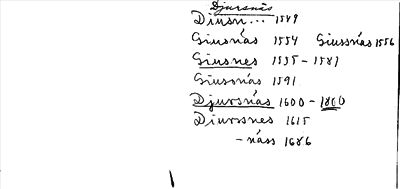 Djursnäs
Diusn... 1549
Giusnäs 1554 Giussnäs 1556
Giusnes 1535-1581
Giusnäs 1591
Djursnäs 1600-1800
Diurssnes 1615
-näss 1686